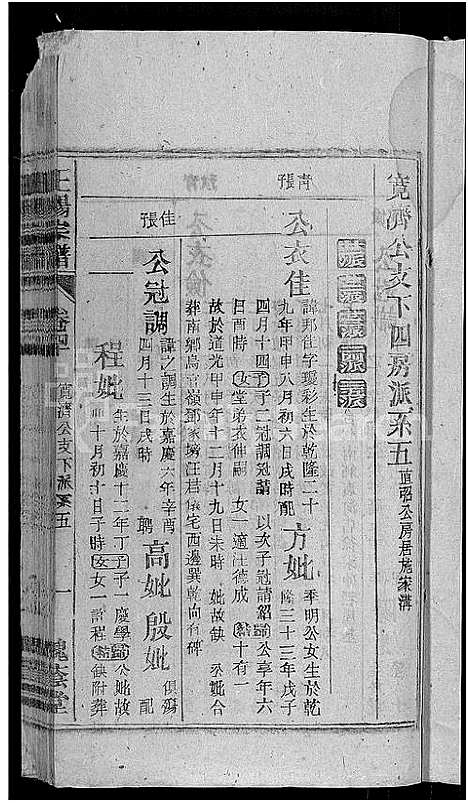 寬濟公支下四房派系五 直昭公房居施家溝
青張
公衣佳
諱邦仕字瓊彩生於乾隆二十
九年甲申八月初六日戌時配
方妣
季明公女生於乾
隆三十三年戊子
四月十四 子二冠調冠請 以次子冠請紹 公享年六
日酉時 女 堂弟衣伸嗣 女一適汪德成 十有一
故於道光甲申年十二月十九日未時 妣故缺 公妣合
葬南鄉烏官嶺鄧家塝汪檔係宅西邊巽乾向有碑
佳張
公冠調
諱之調生於嘉慶六年辛酉
四月十三日戌時
聘
高妣殷妣
俱殤
配
程妣
生於嘉慶十二年丁 子一慶學 公妣故
卯十月初十日子時 女 女一許程 缺附葬
王陽宗譜
卷四
寬濟公支下派系五
一
槐蔭堂